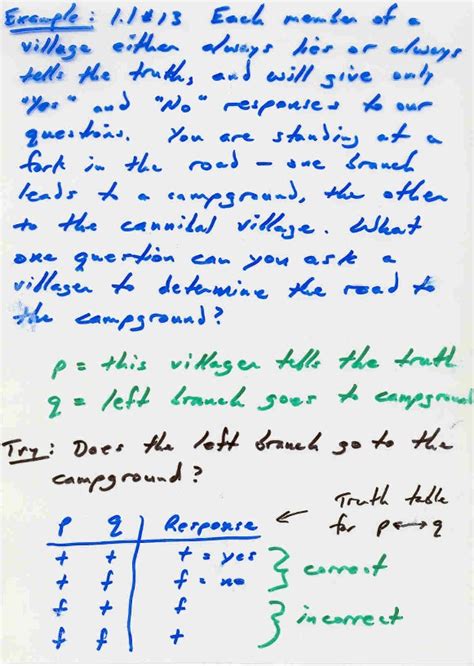 Example: 1.1 #13 Each member of a
village either always lies or always
tells the truth, and will give only
"Yes" and "No" responses to our
questions. You are standing at a
fork in the road — one branch
leads to a campground, the other
to the cannibal village. What
one question can you ask a
villager to determine the road to
the campground?
p = this villager tells the truth
q = left branch goes to campground
Try: Does the left branch go to the
campground?
p q Response ← Truth table
for p ↔ q
t t t = yes
t f f = no
} correct
f t f
f f t
} incorrect